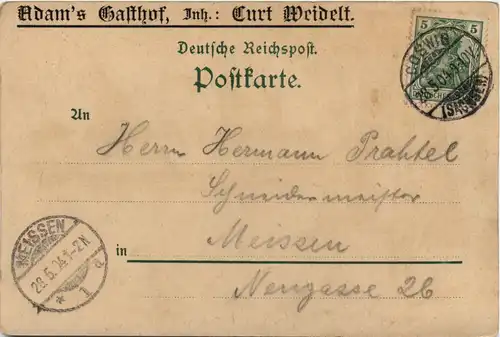 Adam's Gasthof, Inh.: Curt Weidelt.
5 5
COSWIG
28.5.04.
(SACHSEN)
Deutsche Reichspost.
Postkarte.
An
Herrn Hermann Prahtel
Schneidermeister
Meissen
in
Neugasse 26
MEISSEN
28.5.04.1-2N
* 1 d